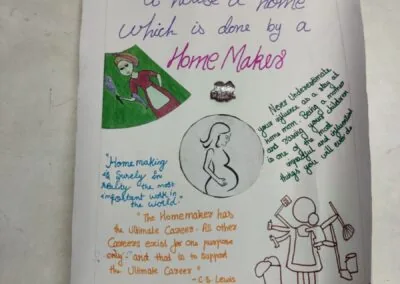 a house a home
which is done by a
Home Maker
Never Underestimate
your influence as a stay at
home mom. Being a mother
and raising your children
is one of the most
impactful and influential
things you will ever do
"Homemaking
is surely in
reality the most
important work in
the world."
"The Homemaker has
the Ultimate Career. All other
Careers exist for one purpose
only - and that is to support
the Ultimate Career"
- C.S. Lewis